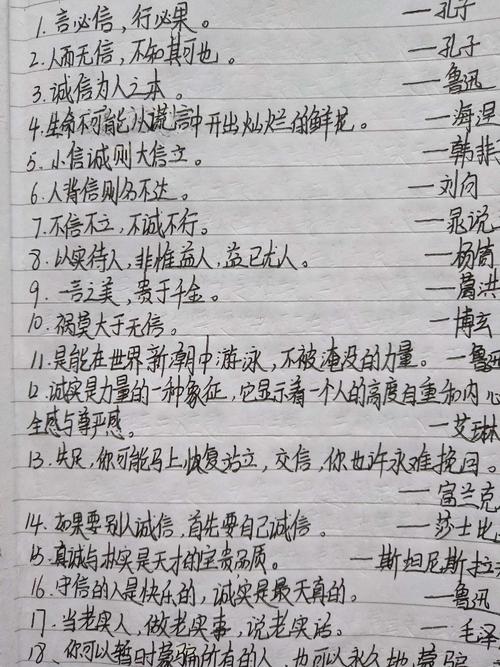 1. 言必信，行必果。 —孔子
2. 人而无信，不知其可也。 —孔子
3. 诚信为人之本。 —鲁迅
4. 生命不可能从谎言中开出灿烂的鲜花。 —海涅
5. 小信诚则大信立。 —韩非
6. 人背信则名不达。 —刘向
7. 不信不立，不诚不行。 —晁说
8. 以实待人，非惟益人，益己尤人。 —杨简
9. 一言之美，贵于千金。 —葛洪
10. 祸莫大于无信。 —博玄
11. 是能在世界新潮中游泳，不被淹没的力量。 —鲁迅
12. 诚实是力量的一种象征，它显示着一个人的高度自重和内心
全感与尊严感。 —艾琳
13. 失足，你可能马上恢复站立，失信，你也许永难挽回。
—富兰克
14. 如果要别人诚信，首先要自己诚信。 —莎士比
15. 真诚与朴实是天才的宝贵品质。 —斯坦尼斯拉
16. 守信的人是快乐的，诚实是最天真的。 —鲁迅
17. 当老实人，做老实事，说老实话。 —毛泽
18. 你可以暂时蒙骗所有的人，也可以永久地蒙骗